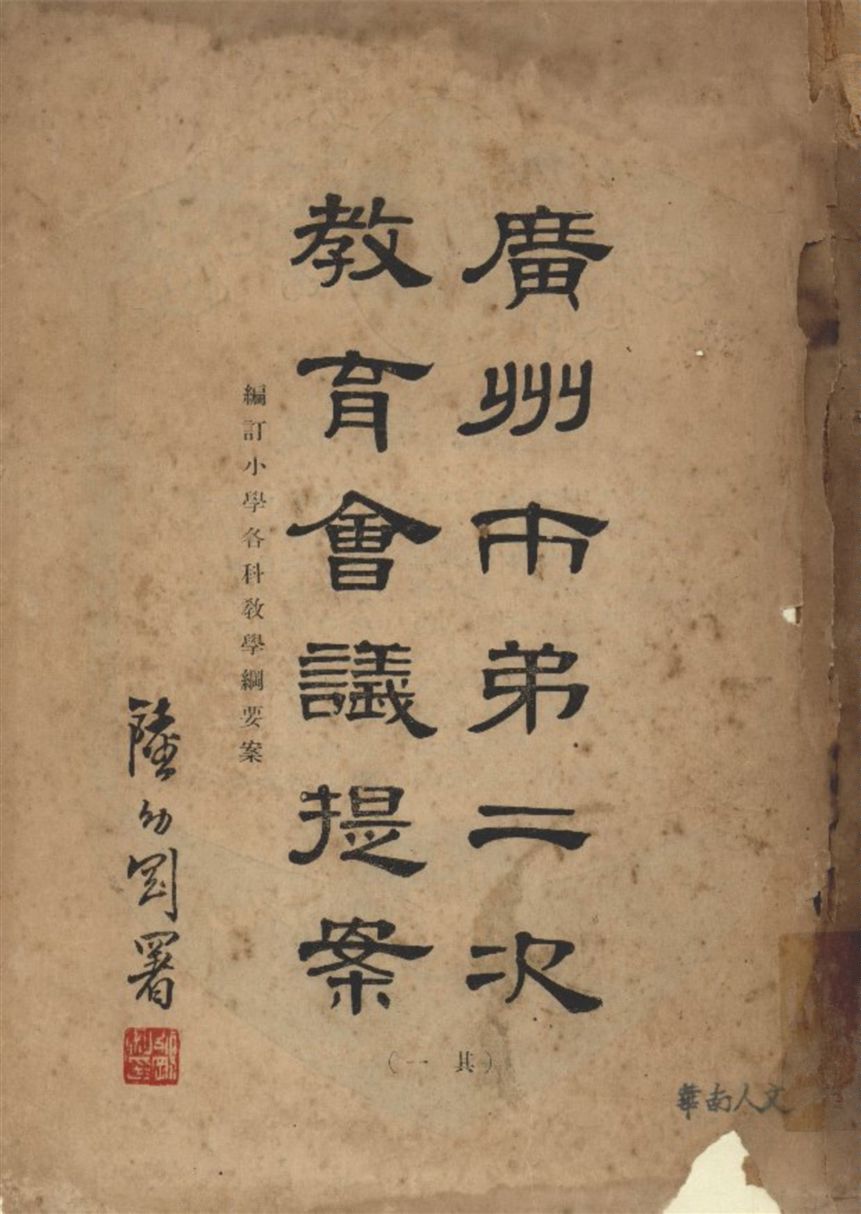 廣州市弟二次
教育會議提案
(其一)
編訂小學各科教學綱要案
陸幼剛署
華南人文